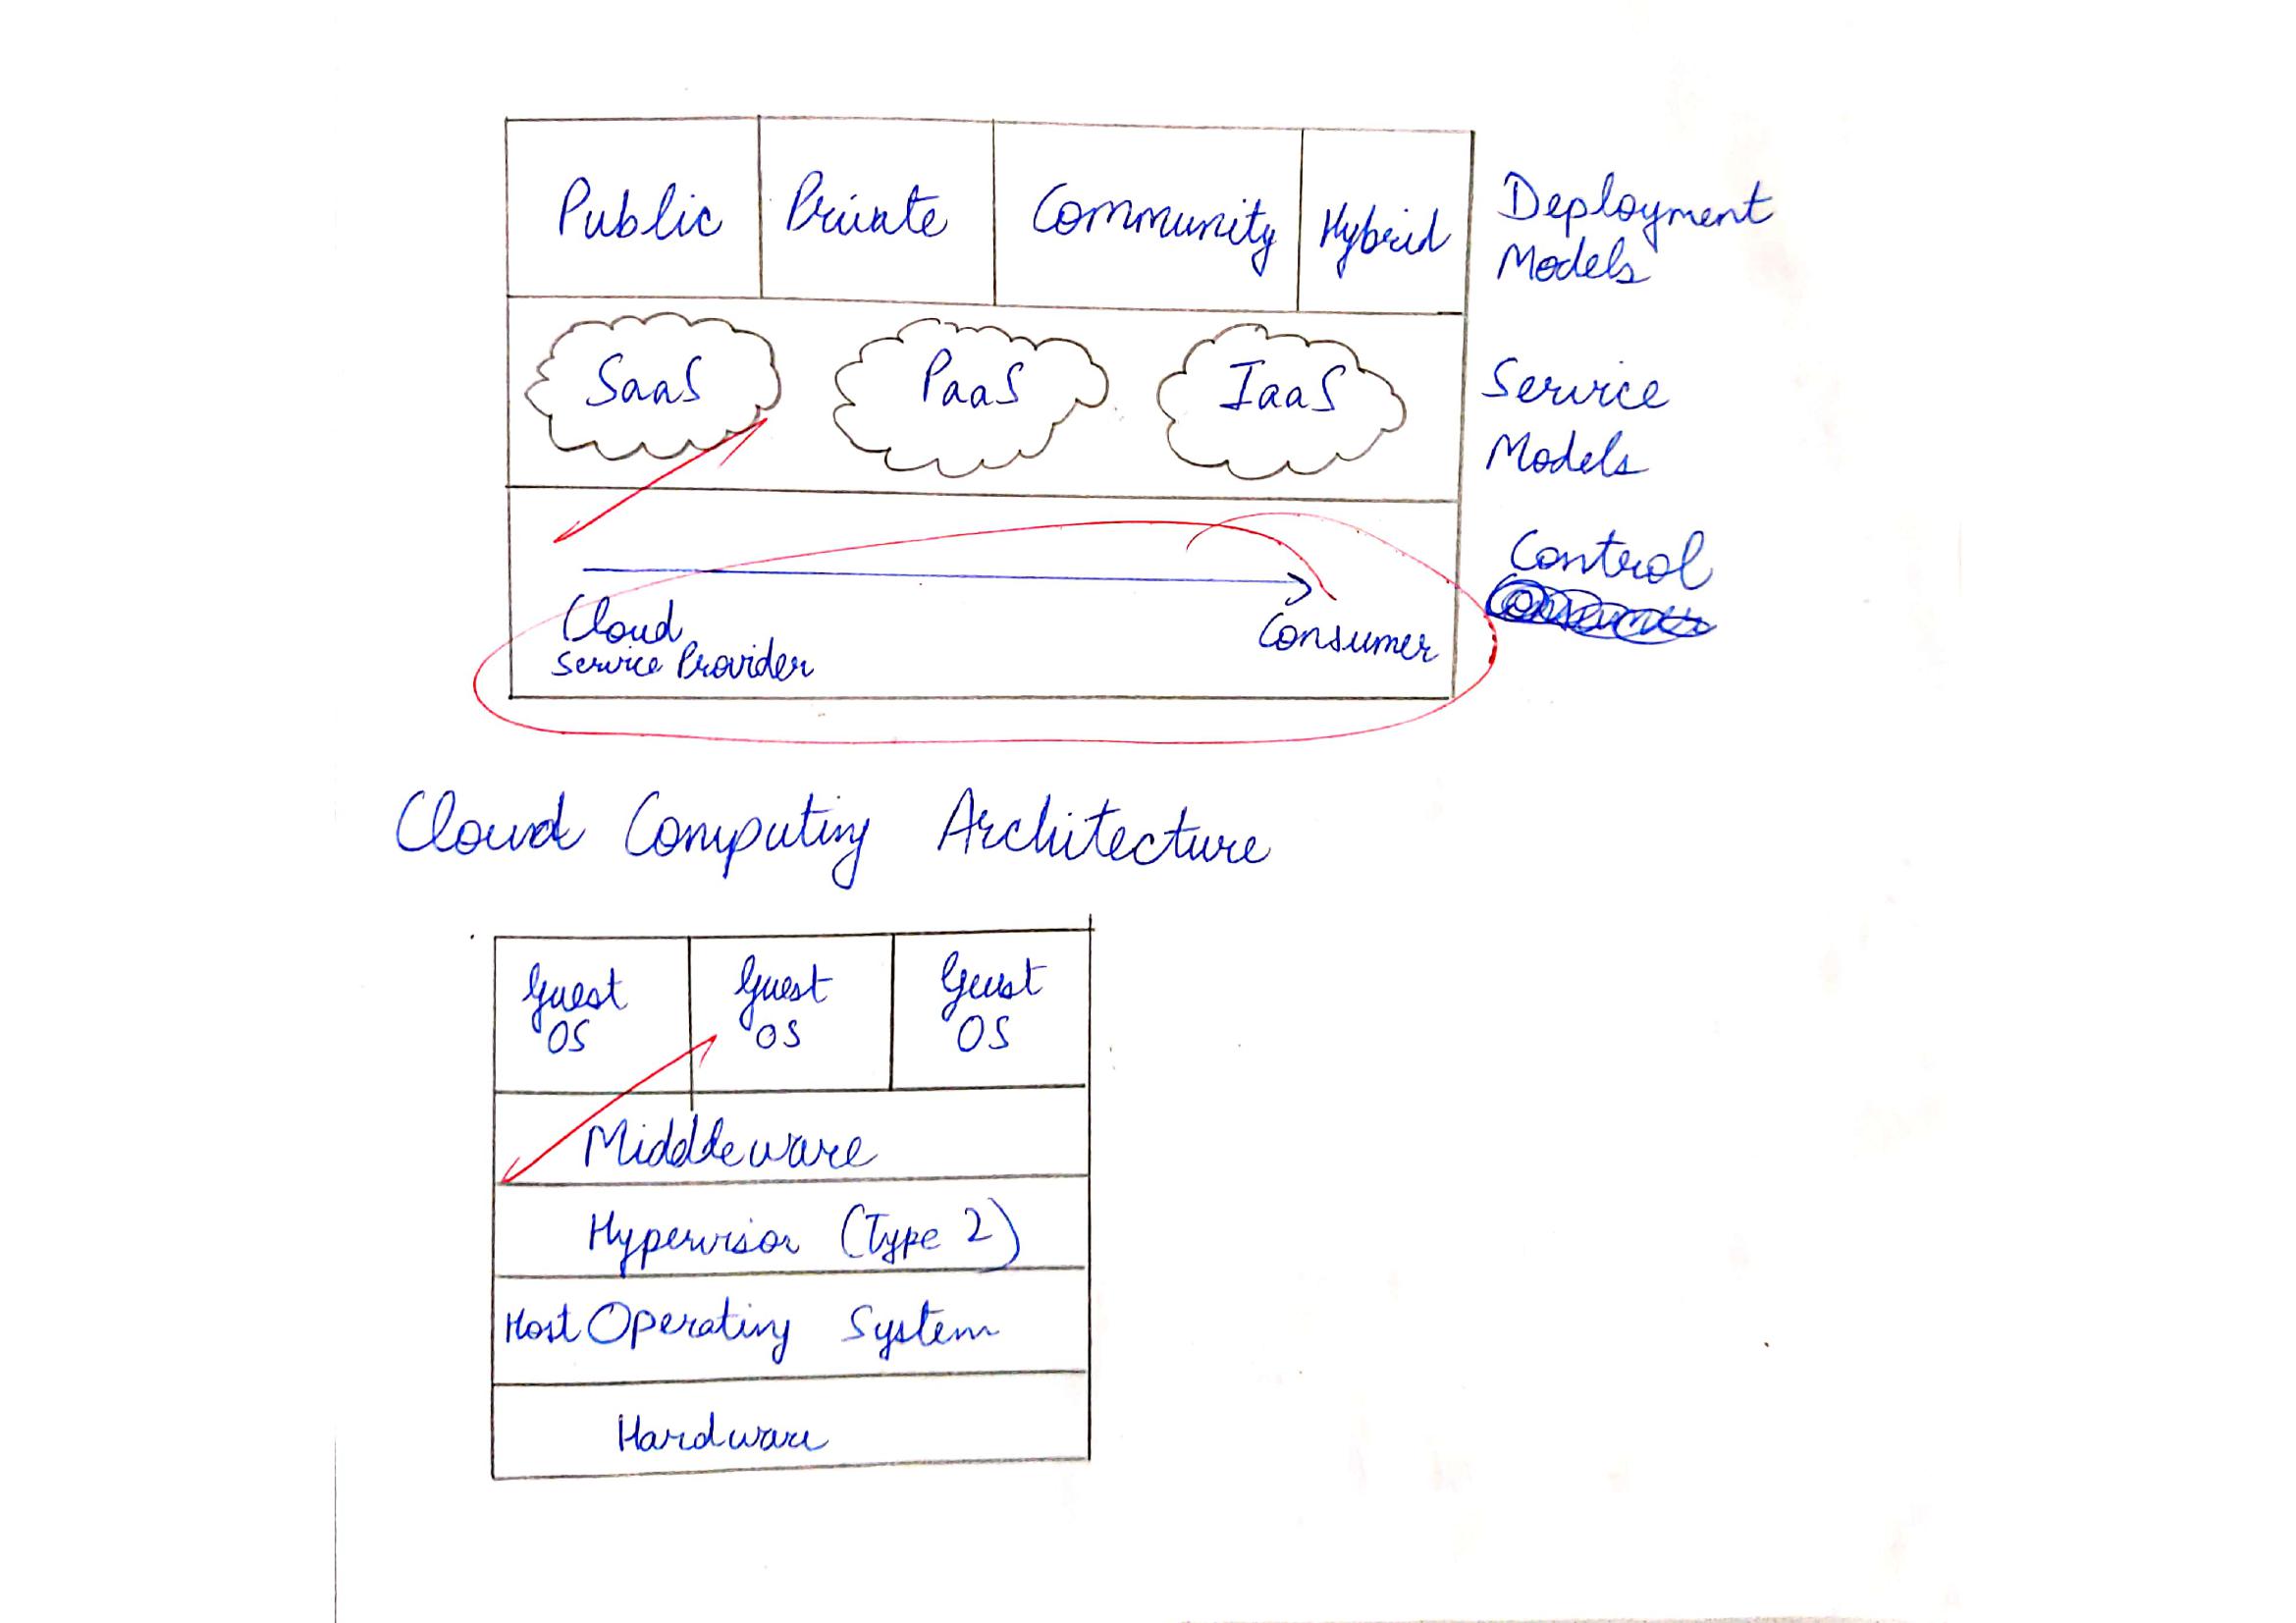 Public Private Community Hybrid
Deployment
Models
SaaS PaaS IaaS
Service
Models
Control
Cloud
Service Provider
Consumer
Cloud Computing Architecture
Guest
OS
Guest
OS
Guest
OS
Middleware
Hypervisor (Type 2)
Host Operating System
Hardware